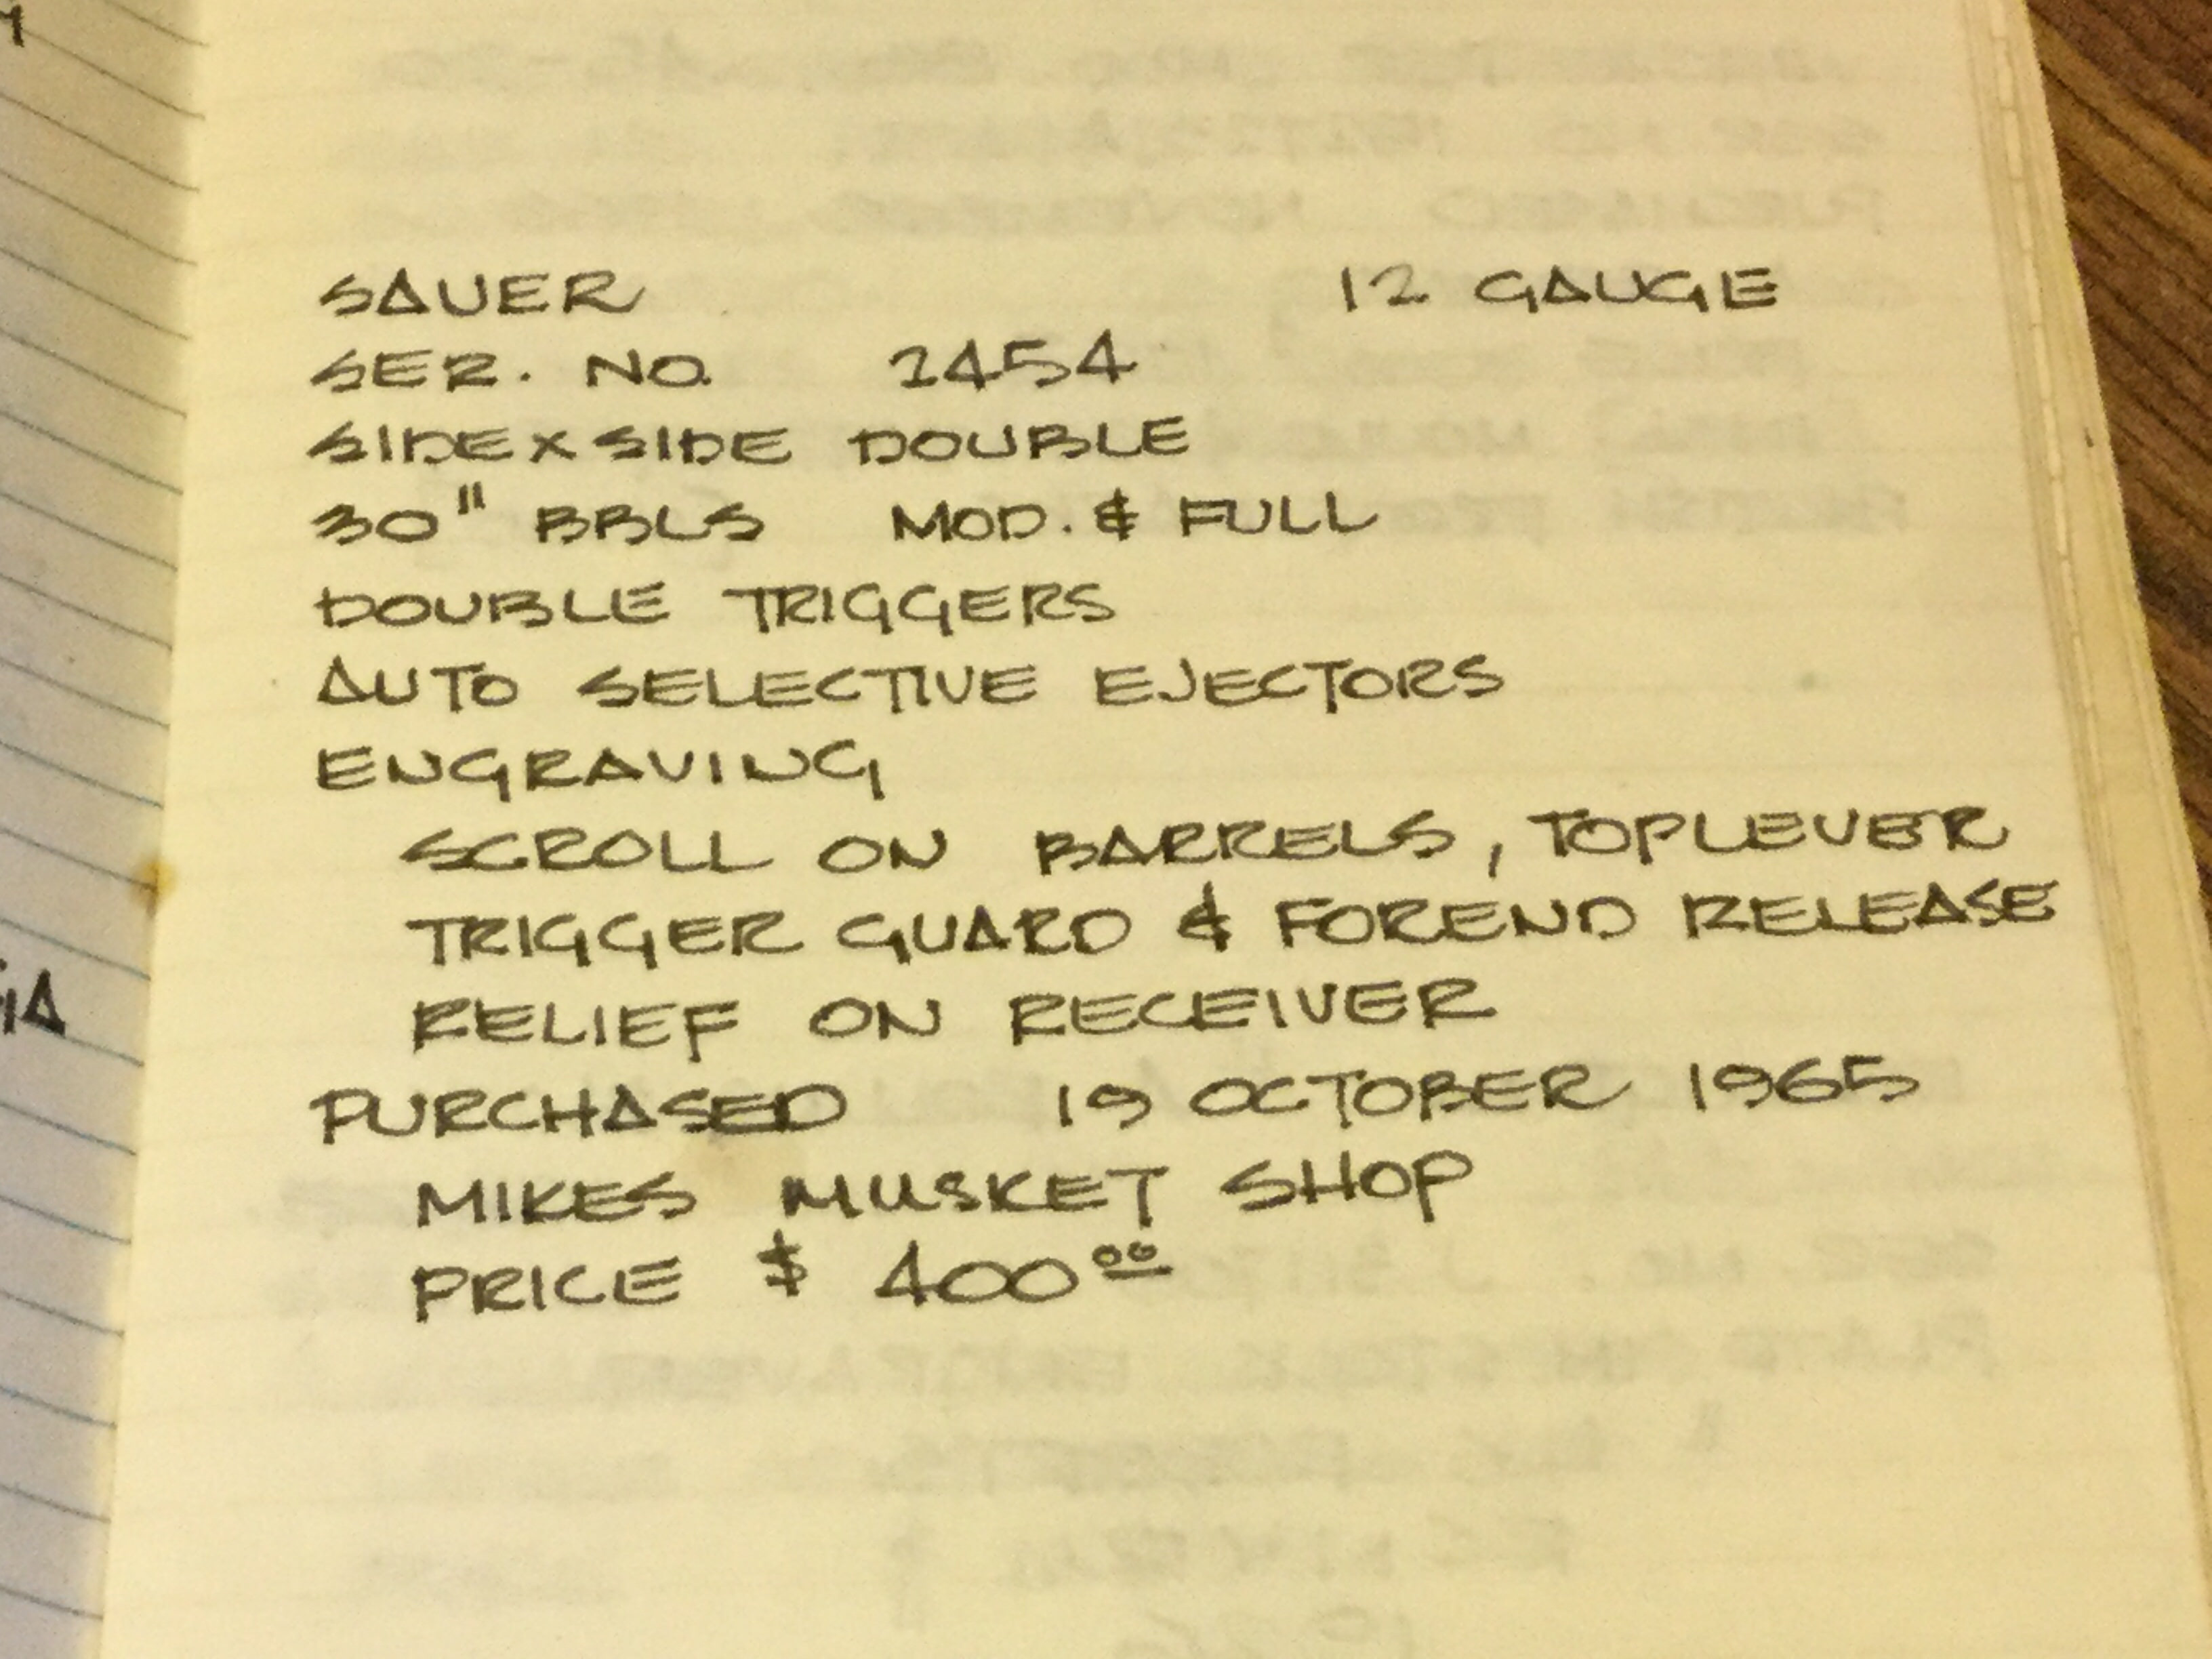 SAUER 12 GAUGE
SER. NO. 2454
SIDE X SIDE DOUBLE
30" BBLS MOD. & FULL
DOUBLE TRIGGERS
AUTO SELECTIVE EJECTORS
ENGRAVING
SCROLL ON BARRELS, TOPLEVER
TRIGGER GUARD & FOREND RELEASE
RELIEF ON RECEIVER
PURCHASED 19 OCTOBER 1965
MIKES MUSKET SHOP
PRICE $ 400.00